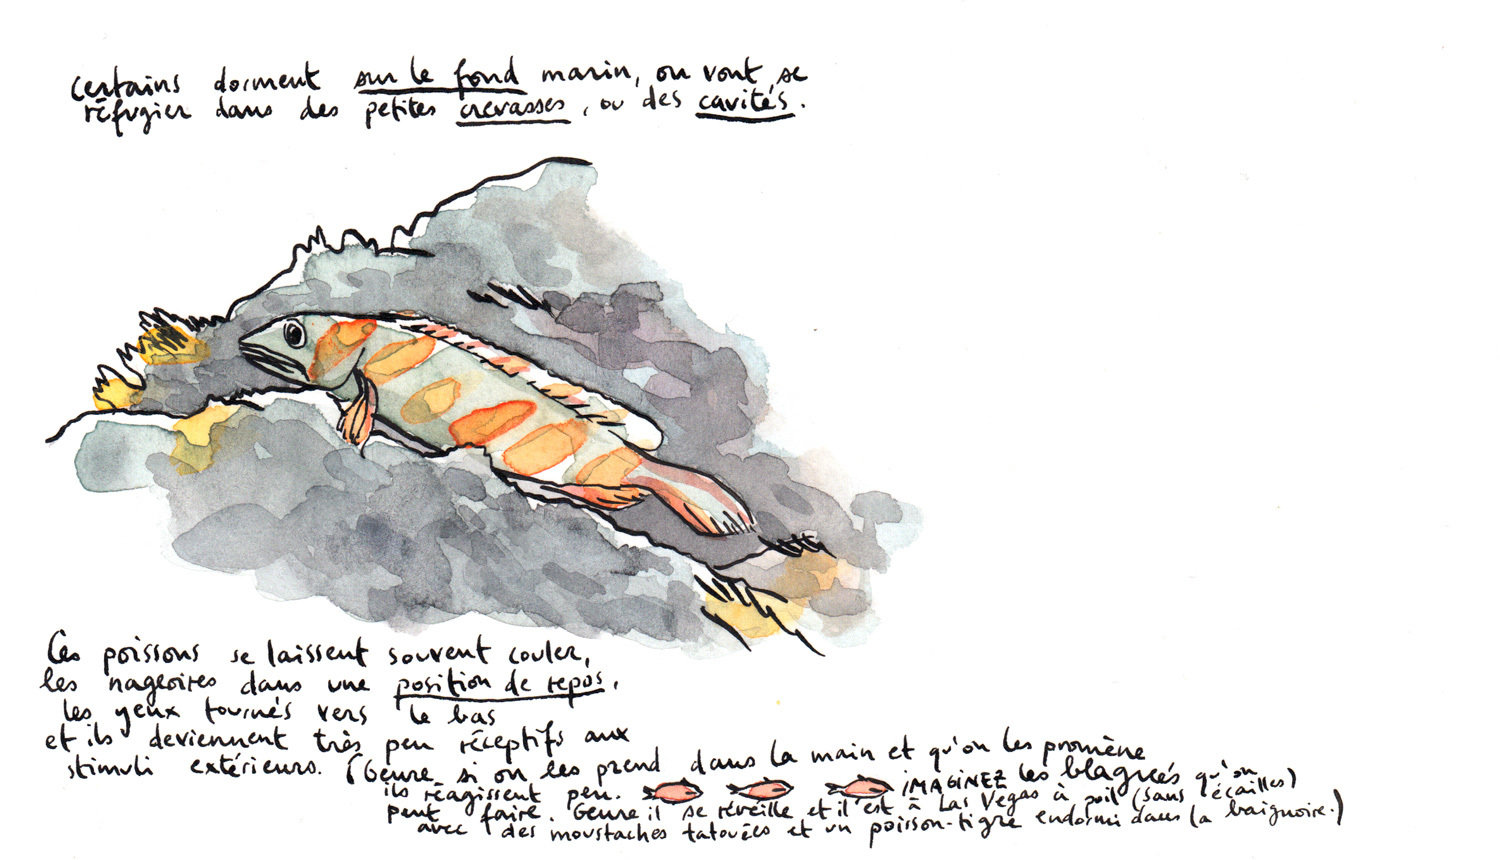 certains dorment sur le fond marin, ou vont se
réfugier dans des petites crevasses, ou des cavités.
Ces poissons se laissent souvent couler,
les nageoires dans une position de repos,
les yeux tournés vers le bas
et ils deviennent très peu réceptifs aux
stimuli extérieurs. (Genre si on les prend dans la main et qu'on les promène
ils réagissent peu. iMAGiNEZ les blagues qu'on
peut faire. Genre il se réveille et il est à Las Vegas à poil (sans écailles)
avec des moustaches tatouées et un poisson-tigre endormi dans la baignoire.)